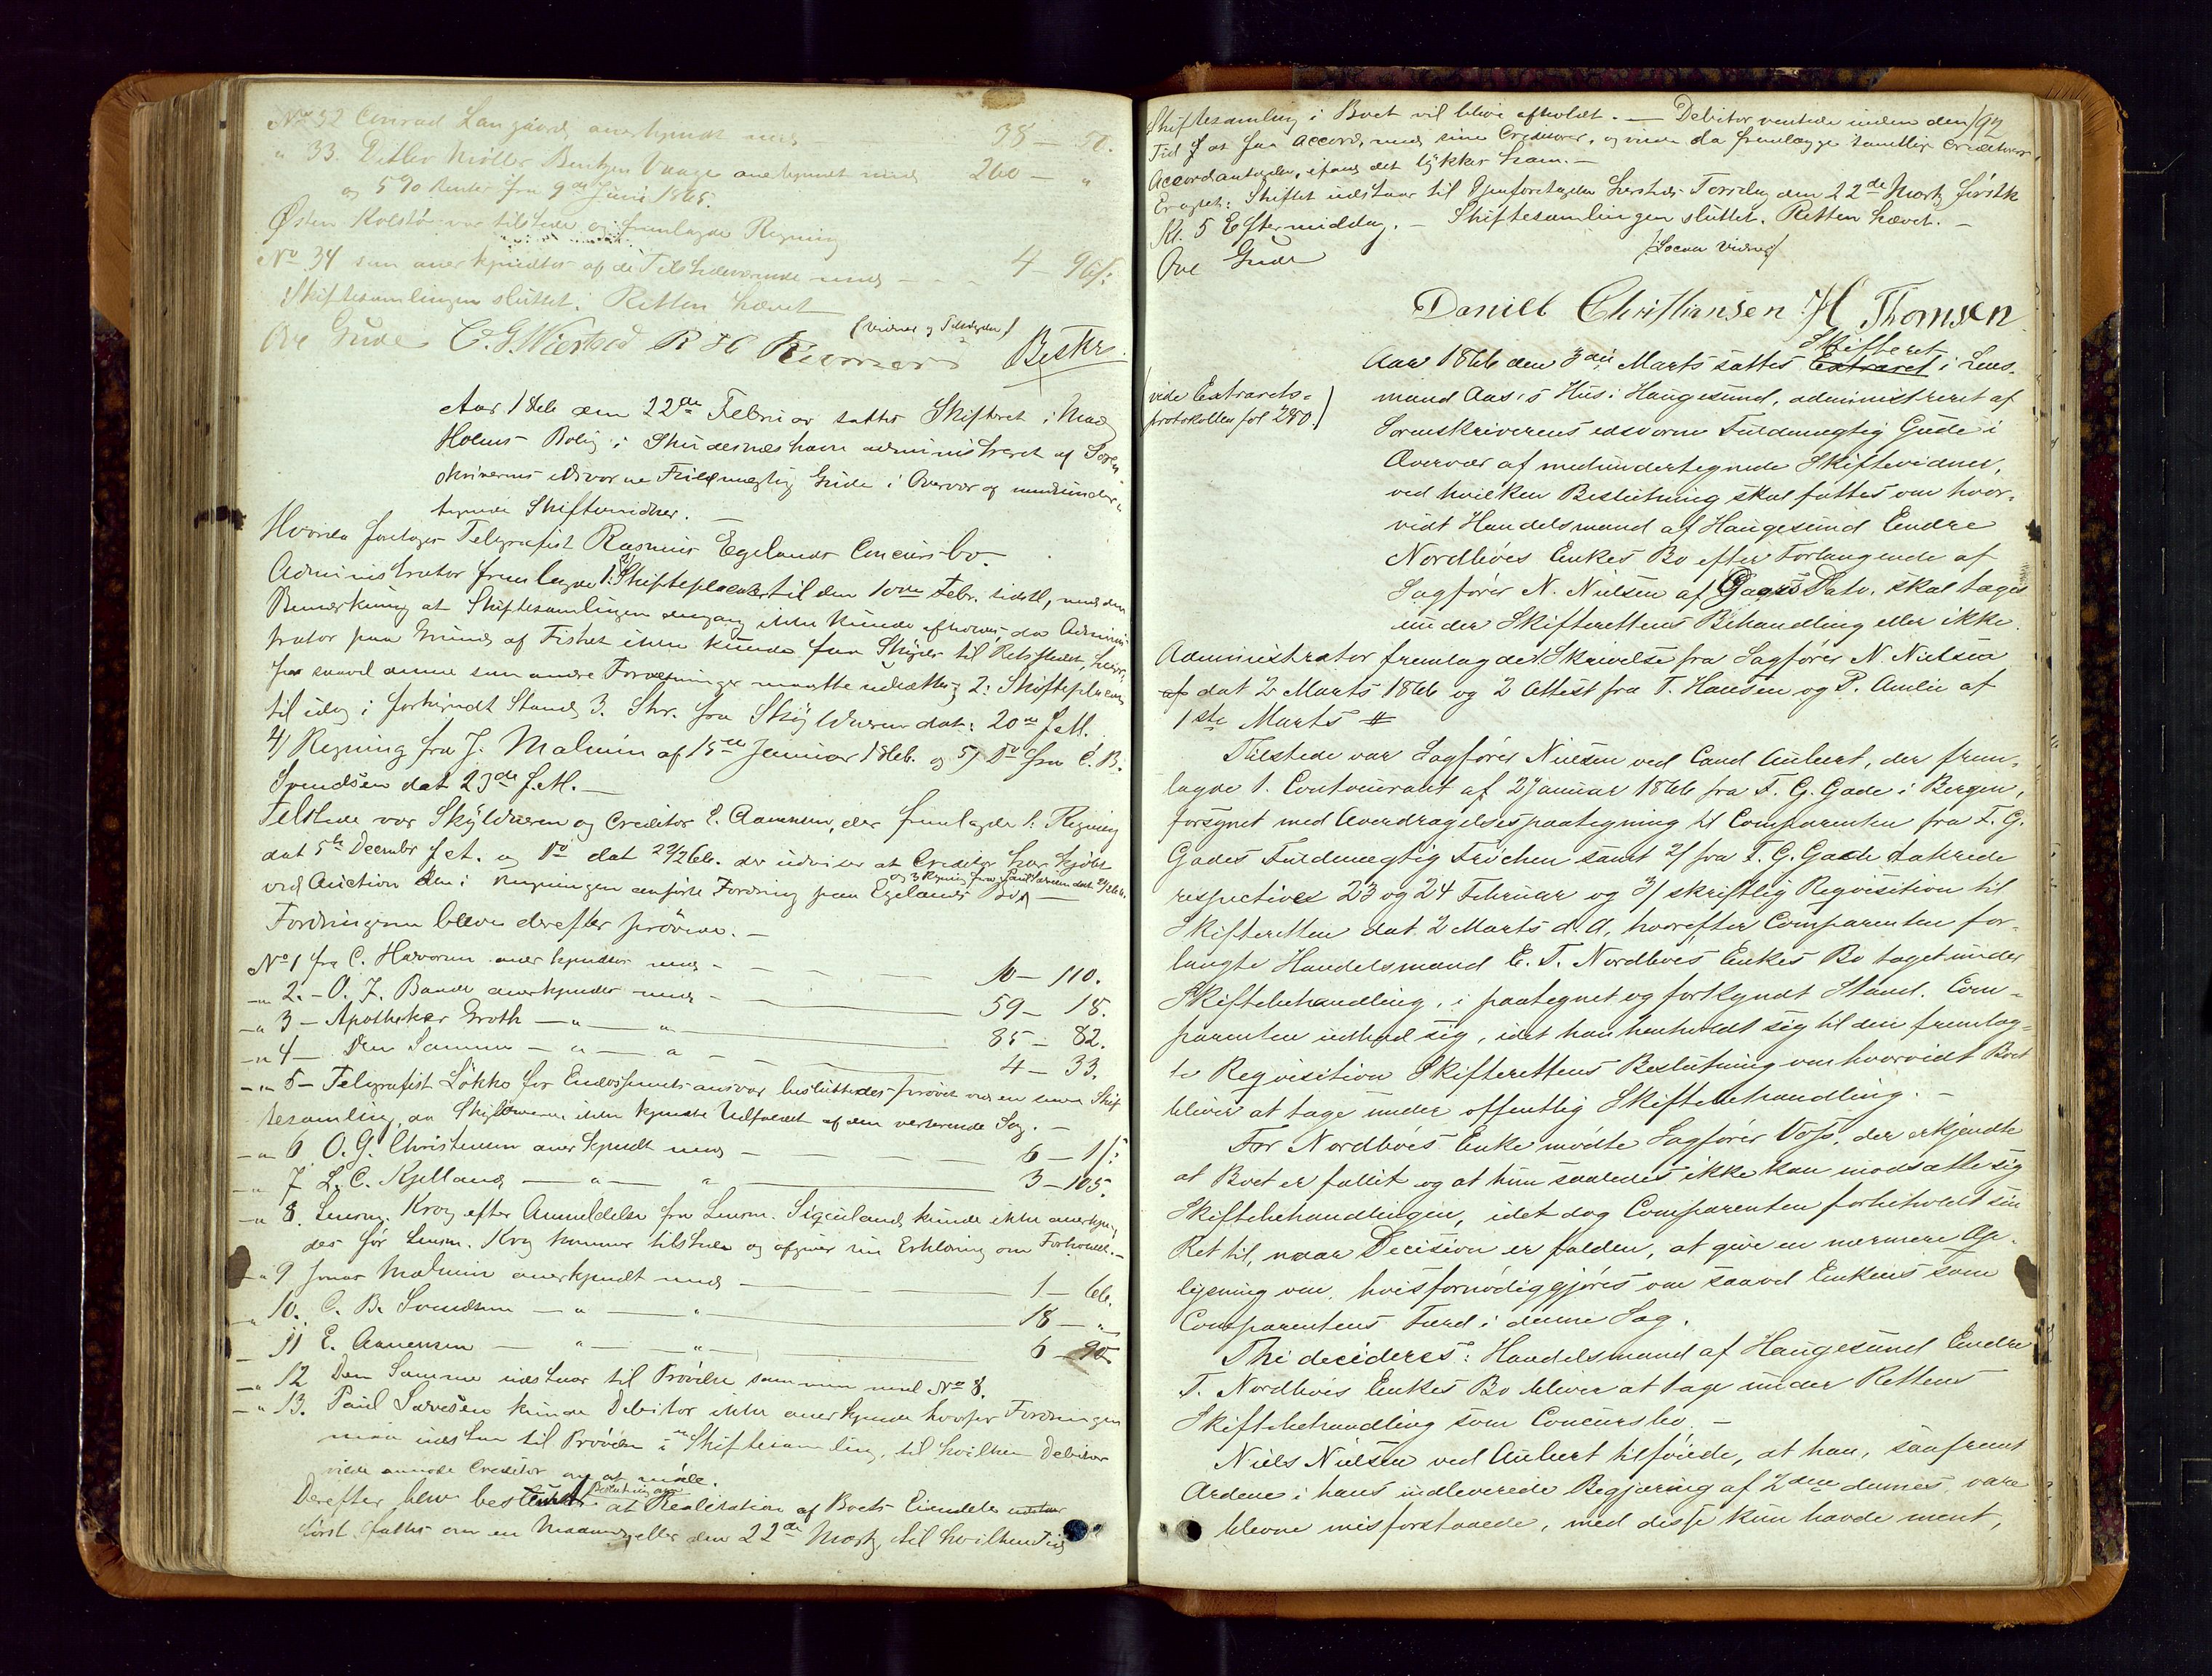 No 32 Conrad Langaard, anerkjendt med 38 –
" 33. Ditlev Møller Bentzen Vaage anerkjendt med 260 – "
og 5 % Renter fra 9de Juni 1865.
Østen Kolstø var tilstede og fremlagde Regning
No 34 som anerkjendtes af de Tilstedeværende med – – 4 – 96 ß:
Skiftesamlingen sluttet. Retten hævet
(Vidner og Tilsagden)
Ove Gude C. G. Wiersted R H Beskr.
Aar 1866 den 22de Februar sattes Skifteret i Mad
Holms Bolig i Skudesneshavn administreret af Soren
skriverens edsvorne Fuldmægtig Gude i Overvær af medunder-
tegnede Skiftevidner. –
Hvorda foretoges Telegrafist Rasmus Egelands Concursbo.
Administrator fremlagde 1: Skifteplacat til den 10de Febr. sidstl, med den
Bemærkning at Skiftesamlingen dengang ikke kunde afholdes, da Admini
strator paa Grund af Fisket ikke kunde faa Skyds til Retsstedet,
for saavel denne som andre Forretninger maatte udsættes, 2: Skifteplacat
til idag i forkyndt Stand, 3. Skr. fra Skyldneren dat: 20de f. M.
4) Regning fra J. Malmin af 15de Januar 1866. og 5) Do fra C. B.
Svendsen dat 23de f. M. –
Tilstede var Skyldneren og Creditor E. Aanensen, der fremlagde 1: Regning
dat 5te Decembr f. A. og Do dat 22/2 66. der udviser at Creditor har kjøbt
og 3 Regning fra Paul Sørensen dat 2/2 66.
ved Auction den i Regningen anførte Fordring paa Egelands Bo –
Fordringerne bleve derefter prøvede. –
No 1 fra C. Havorsen anerkjendtes med – – – – 10 – 110.
– " 2. – O. J. Baade anerkjendes med – 59 – 18.
– " 3 – Apotheker Groth – " – " 35 – 82.
– " 4 – Den Samme – " – " – – 4 – 33.
– " 5 – Telegrafist Løkke for Endossements ansvar besluttedes prøvet ved en senere Skif
tesamling, da Skyldneren ikke kjendte Udfaldet af den verserende Sag. –
– " 6 O. G. Christensen anerkjendt med – – – – 6 – 1 ß:
– " 7 L. C. Kjelland – " – " – 3 – 105.
– " 8. Lensm. Krog efter Anmeldelse fra Lensm. Sigvelland, kunde ikke anerkjen-
des før Lensm. Krog kommer tilstede og afgiver sin Erklæring om Forholdet. –
– " 9 Jonas Malmin anerkjendt med – – – 1 – 66.
– " 10. C. B. Svendsen – " – " 18 – "
– 11 E. Aanensen – " – " – 6 – 90
– " 12 Den Samme udstaar til Prøvelse sammen med No 8.
– " 13. Paul Sørensen kunde Debitor ikke anerkjende hvorfor Fordringen
maa udstaa til Prøvelse i en Skiftesamling, til hvilken Debitor
vilde anmode Creditor om at møde.
Derefter blev bestemt Beslutning om at Realisation af Boets Eiendele
først fattes om en Maaned eller den 22de Marts, til hvilken Tid
192
Skiftesamling i Boet vil blive afholdt. – Debitor ventede inden den
Tid at faa Accord med sine Creditorer, og vilde da fremlægge samtlige Creditorers
Accordantagelse, ifald det lykkes ham. –
Eragtet: Skiftet udstaar til Gjenforetagelse hersteds Torsdag den 22de Marts førstk
Kl. 5 Eftermiddag. – Skiftesamlingen sluttet. Retten hævet. –
(Socan Vidner)
Ove Gude
Daniel Christiansen H Thomsen
Skifteret
Aar 1866 den 3die Marts sattes Extraret i Lens-
(vide Extrarets-
protokollen fol 280.)
mand Aases Hus i Haugesund, administreret af
Sorenskriverens edsvorne Fuldmægtig Gude i
Overvær af medundertegnede Skiftevidner,
ved hvilken Beslutning skal fattes om hvor-
vidt Handelsmand af Haugesund Endre
Nordbøes Enkes Bo efter Forlangende af
Sagfører N. Nielsen af Dato. skal tages
under Skifterettens Behandling eller ikke.
Administrator fremlagde 1. Skrivelse fra Sagfører N. Nielsen
af dat 2 Marts 1866 og 2 Attest fra T. Hansen og P. Amlie af
1ste Marts #
Tilstede var Sagfører Nielsen ved Cand Aubert, der frem-
lagde 1. Contocurant af 2 Januar 1866 fra F. G. Gade i Bergen,
forsynet med Overdragelsespaategning til Comparenten fra F. G.
Gades Fuldmægtig Frichen samt 2/ fra F. G. Gade daterede
respective 23 og 24 Februar og 3/ skriftlig Reqvisition til
Skifteretten dat. 2 Marts d. A, hvorefter Comparenten for-
langte Handelsmand E. T. Nordbøes Enkes Bo taget under
Skiftebehandling, i paategnet og forkyndt Stand. Com-
parenten udbad sig, idet han henholdt sig til den fremlag-
te Reqvisition Skifterettens Beslutning om hvorvidt Boet
bliver at tage under offentlig Skiftebehandling. –
For Nordbøes Enke mødte Sagfører Voss, der erkjendte
at Boet er fallit og at hun saaledes ikke kan modsætte sig
Skiftebehandlingen, idet dog Comparenten forbeholdt sin
Ret til, naar Decision er falden, at give en nærmere Op-
lysning om, hvis fornødiggjøres om saavel Enkens som
Comparentens Færd i denne Sag.
Thi decideres: Handelsmand af Haugesund Endre
T. Nordbøes Enkes Bo bliver at tage under Rettens
Skiftebehandling som Concursbo. –
Niels Nielsen ved Aubert tilføiede, at han, saafremt
Ordene i hans indleverede Begjæring af 2den dennes, vare
blevne misforstaaede, med disse kun havde ment,